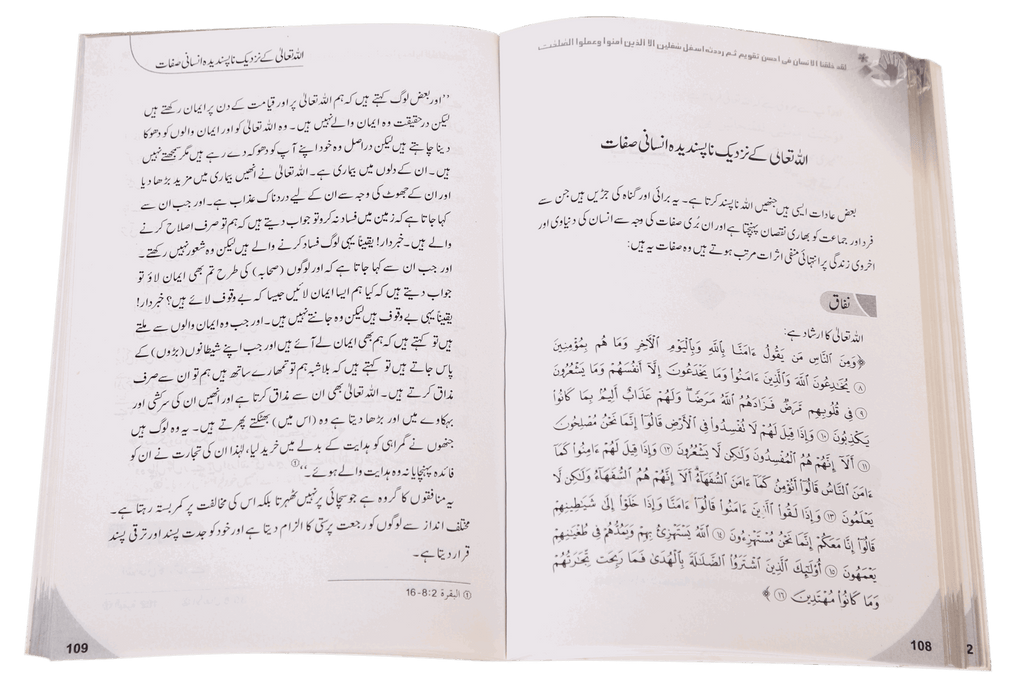 لقد خلقنا الانسان فی احسن تقویم ثم رددنه اسفل سفلین الا الذین امنوا وعملوا الصلحت
اللہ تعالیٰ کے نزدیک ناپسندیدہ انسانی صفات
بعض عادات ایسی ہیں جنھیں اللہ ناپسند کرتا ہے۔ یہ برائی اور گناہ کی جڑیں ہیں جن سے
فرد اور جماعت کو بھاری نقصان پہنچتا ہے اور ان بُری صفات کی وجہ سے انسان کی دنیاوی اور
اخروی زندگی پر انتہائی منفی اثرات مرتب ہوتے ہیں وہ صفات یہ ہیں:
نفاق
اللہ تعالیٰ کا ارشاد ہے:
﴿وَمِنَ النَّاسِ مَن يَقُولُ ءَامَنَّا بِاللَّهِ وَبِالْيَوْمِ الْآخِرِ وَمَا هُم بِمُؤْمِنِينَ
٨ يُخَادِعُونَ اللَّهَ وَالَّذِينَ ءَامَنُوا وَمَا يَخْدَعُونَ إِلَّا أَنفُسَهُمْ وَمَا يَشْعُرُونَ
٩ فِي قُلُوبِهِم مَّرَضٌ فَزَادَهُمُ اللَّهُ مَرَضًا وَلَهُمْ عَذَابٌ أَلِيمٌ بِمَا كَانُوا
يَكْذِبُونَ ١٠ وَإِذَا قِيلَ لَهُمْ لَا تُفْسِدُوا فِي الْأَرْضِ قَالُوا إِنَّمَا نَحْنُ مُصْلِحُونَ
١١ أَلَا إِنَّهُمْ هُمُ الْمُفْسِدُونَ وَلَٰكِن لَّا يَشْعُرُونَ ١٢ وَإِذَا قِيلَ لَهُمْ ءَامِنُوا كَمَا
ءَامَنَ النَّاسُ قَالُوا أَنُؤْمِنُ كَمَا ءَامَنَ السُّفَهَاءُ أَلَا إِنَّهُمْ هُمُ السُّفَهَاءُ وَلَٰكِن لَّا
يَعْلَمُونَ ١٣ وَإِذَا لَقُوا الَّذِينَ ءَامَنُوا قَالُوا ءَامَنَّا وَإِذَا خَلَوْا إِلَىٰ شَيَاطِينِهِمْ
قَالُوا إِنَّا مَعَكُمْ إِنَّمَا نَحْنُ مُسْتَهْزِءُونَ ١٤ اللَّهُ يَسْتَهْزِئُ بِهِمْ وَيَمُدُّهُمْ فِي طُغْيَانِهِمْ
يَعْمَهُونَ ١٥ أُولَٰئِكَ الَّذِينَ اشْتَرَوُا الضَّلَالَةَ بِالْهُدَىٰ فَمَا رَبِحَت تِّجَارَتُهُمْ
وَمَا كَانُوا مُهْتَدِينَ ١٦﴾
108
2
اللہ تعالیٰ کے نزدیک ناپسندیدہ انسانی صفات
’’اور بعض لوگ کہتے ہیں کہ ہم اللہ تعالیٰ پر اور قیامت کے دن پر ایمان رکھتے ہیں
لیکن درحقیقت وہ ایمان والے نہیں ہیں۔ وہ اللہ تعالیٰ کو اور ایمان والوں کو دھوکا
دینا چاہتے ہیں لیکن دراصل وہ خود اپنے آپ کو دھوکہ دے رہے ہیں مگر سمجھتے نہیں
ہیں۔ ان کے دلوں میں بیماری ہے۔ اللہ تعالیٰ نے انھیں بیماری میں مزید بڑھا دیا
اور ان کے جھوٹ کی وجہ سے ان کے لیے دردناک عذاب ہے۔ اور جب ان سے
کہا جاتا ہے کہ زمین میں فساد نہ کرو تو جواب دیتے ہیں کہ ہم تو صرف اصلاح کرنے
والے ہیں۔ خبردار! یقیناً یہی لوگ فساد کرنے والے ہیں لیکن وہ شعور نہیں رکھتے۔
اور جب ان سے کہا جاتا ہے کہ اور لوگوں (صحابہ) کی طرح تم بھی ایمان لاؤ تو
جواب دیتے ہیں کہ کیا ہم ایسا ایمان لائیں جیسا کہ بے وقوف لائے ہیں؟ خبردار!
یقیناً یہی بے وقوف ہیں لیکن وہ جانتے نہیں ہیں۔ اور جب وہ ایمان والوں سے ملتے
ہیں تو کہتے ہیں کہ ہم بھی ایمان لے آئے ہیں اور جب اپنے شیطانوں (بڑوں) کے
پاس جاتے ہیں تو کہتے ہیں کہ بلاشبہ ہم تو تمھارے ساتھ ہیں ہم تو ان سے صرف
مذاق کرتے ہیں۔ اللہ تعالیٰ بھی ان سے مذاق کرتا ہے اور انھیں ان کی سرکشی اور
بہکاوے میں اور بڑھا دیتا ہے وہ (اس میں) بھٹکتے پھرتے ہیں۔ یہ وہ لوگ ہیں
جنھوں نے گمراہی کو ہدایت کے بدلے میں خرید لیا، لہٰذا ان کی تجارت نے ان کو
فائدہ پہنچایا نہ وہ ہدایت والے ہوئے۔‘‘①
یہ منافقوں کا گروہ ہے جو سچائی پر نہیں ٹھہرتا بلکہ اس کی مخالفت پر کمربستہ رہتا ہے۔
مختلف انداز سے لوگوں کو رجعت پرستی کا الزام دیتا ہے اور خود کو جدت پسند اور ترقی پسند
قرار دیتا ہے۔
① البقرة 2:8-16
109